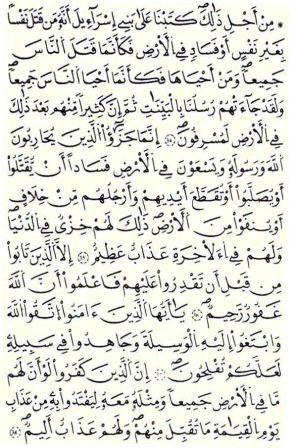 مِنْ أَجْلِ ذَٰلِكَ كَتَبْنَا عَلَىٰ بَنِي إِسْرَآءِيلَ أَنَّهُۥ مَن قَتَلَ نَفْسًا
بِغَيْرِ نَفْسٍ أَوْ فَسَادٍ فِي الْأَرْضِ فَكَأَنَّمَا قَتَلَ النَّاسَ
جَمِيعًا وَمَنْ أَحْيَاهَا فَكَأَنَّمَا أَحْيَا النَّاسَ جَمِيعًا
وَلَقَدْ جَآءَتْهُمْ رُسُلُنَا بِالْبَيِّنَٰتِ ثُمَّ إِنَّ كَثِيرًا مِّنْهُم بَعْدَ ذَٰلِكَ
فِي الْأَرْضِ لَمُسْرِفُونَ إِنَّمَا جَزَٰٓؤُا الَّذِينَ يُحَارِبُونَ
اللَّهَ وَرَسُولَهُۥ وَيَسْعَوْنَ فِي الْأَرْضِ فَسَادًا أَنْ يُّقَتَّلُوٓا
أَوْ يُصَلَّبُوٓا أَوْ تُقَطَّعَ أَيْدِيهِمْ وَأَرْجُلُهُم مِّنْ خِلَٰفٍ
أَوْ يُنفَوْا مِنَ الْأَرْضِ ذَٰلِكَ لَهُمْ خِزْيٌ فِي الدُّنْيَا
وَلَهُمْ فِي الْأَخِرَةِ عَذَابٌ عَظِيمٌ إِلَّا الَّذِينَ تَابُوا
مِن قَبْلِ أَن تَقْدِرُوا عَلَيْهِمْ فَاعْلَمُوٓا أَنَّ اللَّهَ
غَفُورٌ رَّحِيمٌ يَٰٓأَيُّهَا الَّذِينَ ءَامَنُوا اتَّقُوا اللَّهَ
وَابْتَغُوٓا إِلَيْهِ الْوَسِيلَةَ وَجَٰهِدُوا فِي سَبِيلِهِۦ
لَعَلَّكُمْ تُفْلِحُونَ إِنَّ الَّذِينَ كَفَرُوا لَوْ أَنَّ لَهُم
مَّا فِي الْأَرْضِ جَمِيعًا وَمِثْلَهُۥ مَعَهُۥ لِيَفْتَدُوا بِهِۦ مِنْ عَذَابِ
يَوْمِ الْقِيَٰمَةِ مَا تُقُبِّلَ مِنْهُمْ وَلَهُمْ عَذَابٌ أَلِيمٌ